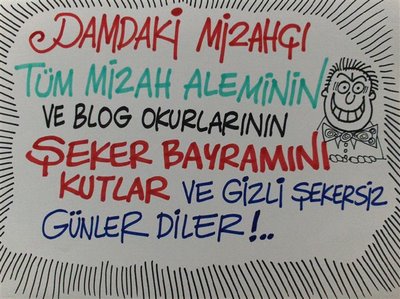 DAMDAKİ MİZAHÇI
TÜM MİZAH ALEMİNİN
VE BLOG OKURLARININ
ŞEKER BAYRAMINI
KUTLAR VE GİZLİ ŞEKERSİZ
GÜNLER DİLER!..